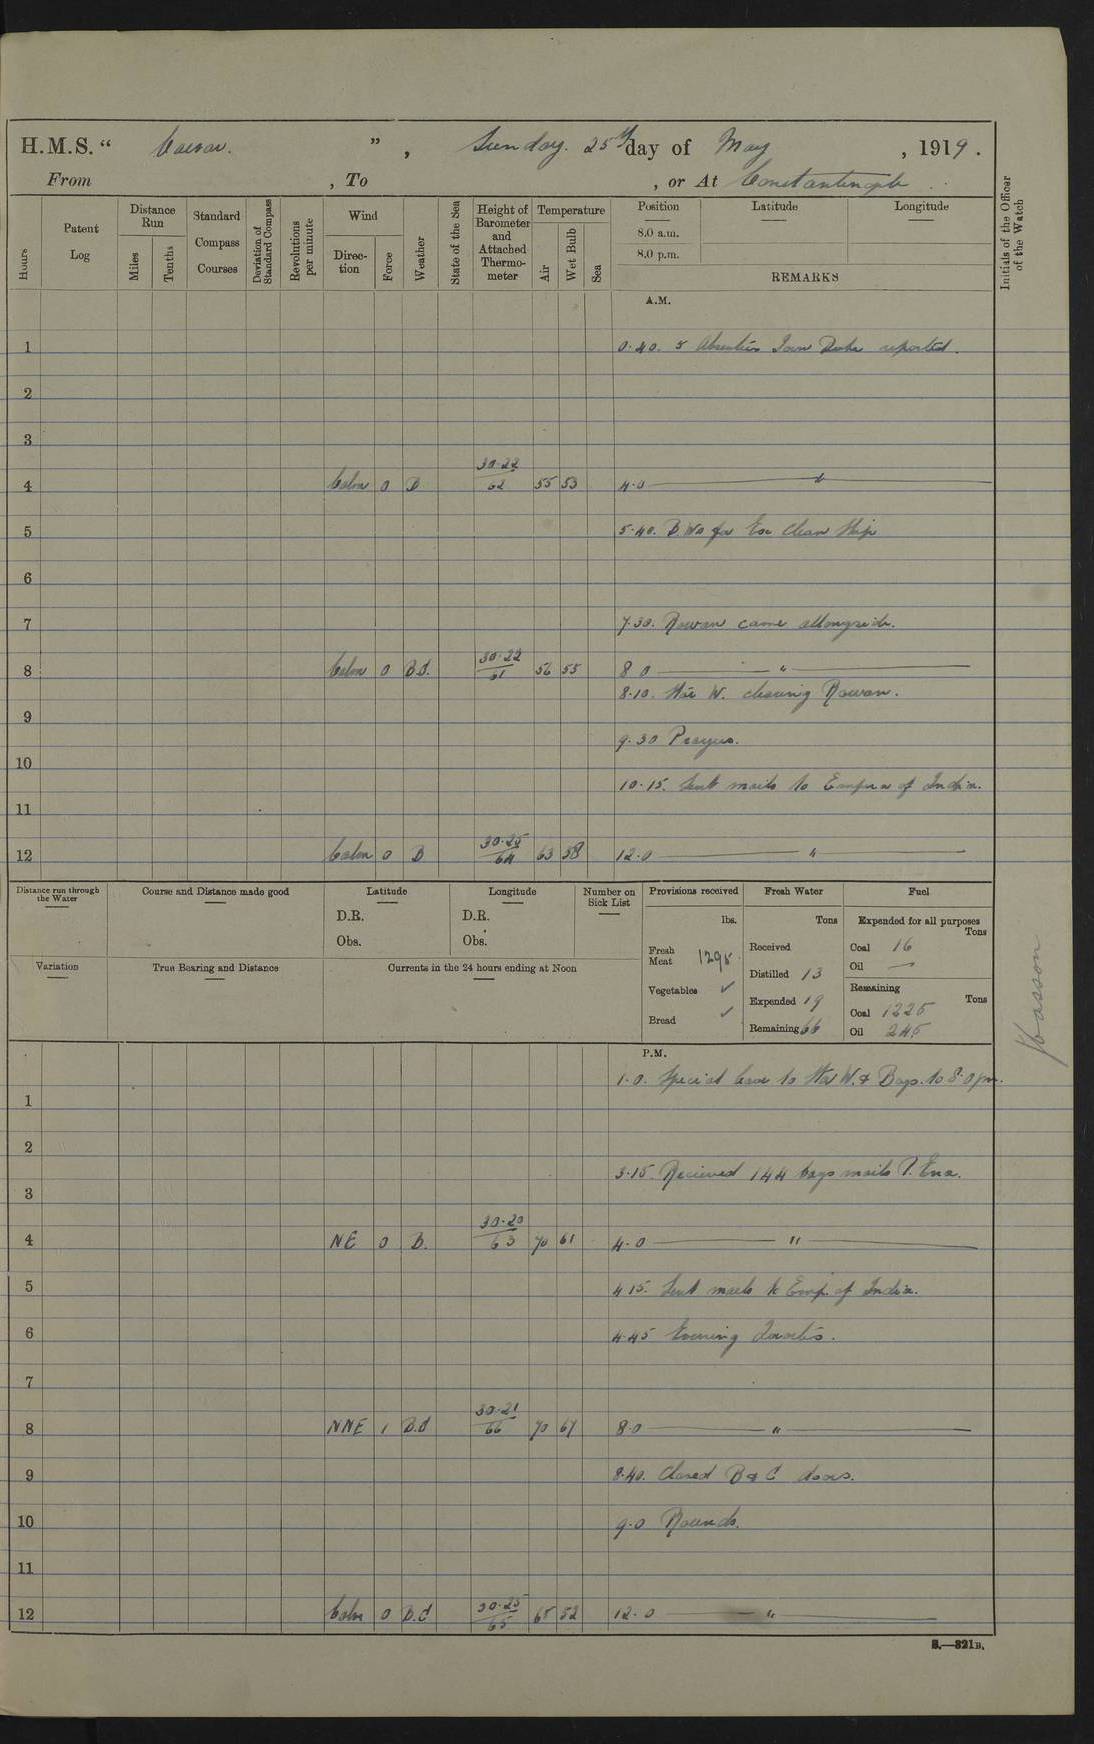 H.M.S. " Caesar. " , Sunday. 25th day of May , 1919.
From , To , or At Constantinople
Hours
Patent Log
Distance Run
Miles
Tenths
Standard Compass Courses
Deviation of Standard Compass
Revolutions per minute
Wind
Direction
Force
Weather
State of the Sea
Height of Barometer and Attached Thermometer
Temperature
Air
Wet Bulb
Sea
Position
8.0 a.m.
8.0 p.m.
Latitude
Longitude
REMARKS
Initials of the Officer of the Watch
A.M.
1 0.40. 5 Absentees reported.
2
3
4 Calm 0 B 30.22 62 55 53 4.0 "
5 5.40. for Ex Clean Ship
6
7 7.30. Rowan came alongside.
8 Calm 0 B.C. 30.22 61 56 55 8 0 "
8.10. Star W. clearing Rowan.
9
9.30 Prayers.
10
10.15. Sent mails to Empress of India.
11
12 Calm 0 B 30.25 64 63 58 12.0 "
Distance run through the Water
Course and Distance made good
Latitude
D.R.
Obs.
Longitude
D.R.
Obs.
Number on Sick List
Provisions received
lbs.
Fresh Meat 1295
Vegetables ✓
Bread ✓
Fresh Water
Tons
Received
Distilled 13
Expended 19
Remaining 66
Fuel
Expended for all purposes
Tons
Coal 16
Oil —
Remaining
Tons
Coal 1225
Oil 245
Variation
True Bearing and Distance
Currents in the 24 hours ending at Noon
P.M.
1.0. Special leave to Star W. & Boys. to 8.0 pm.
1
2
3.15. Recieved 144 bags mails Ena.
3
4 NE 0 B. 30.20 63 70 61 4.0 "
5 4 15. Sent mails to Emp. of India.
6 4.45 Evening Quarters.
7
8 NNE 1 B.C 30.21 66 70 61 8.0 "
9 8.40. Closed B & C doors.
10 9.0 Rounds.
11
12 Calm 0 B.C 30.25 65 65 52 12.0 "
S.—321B.